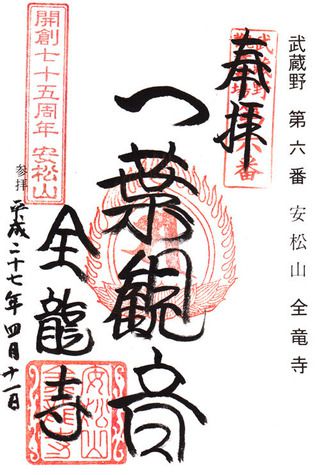 武蔵野 第六番 安松山 全竜寺
奉拝
一葉観音
全龍寺
開創七十五周年 安松山
参拝 平成二十七年四月十一日
安松山
全龍寺